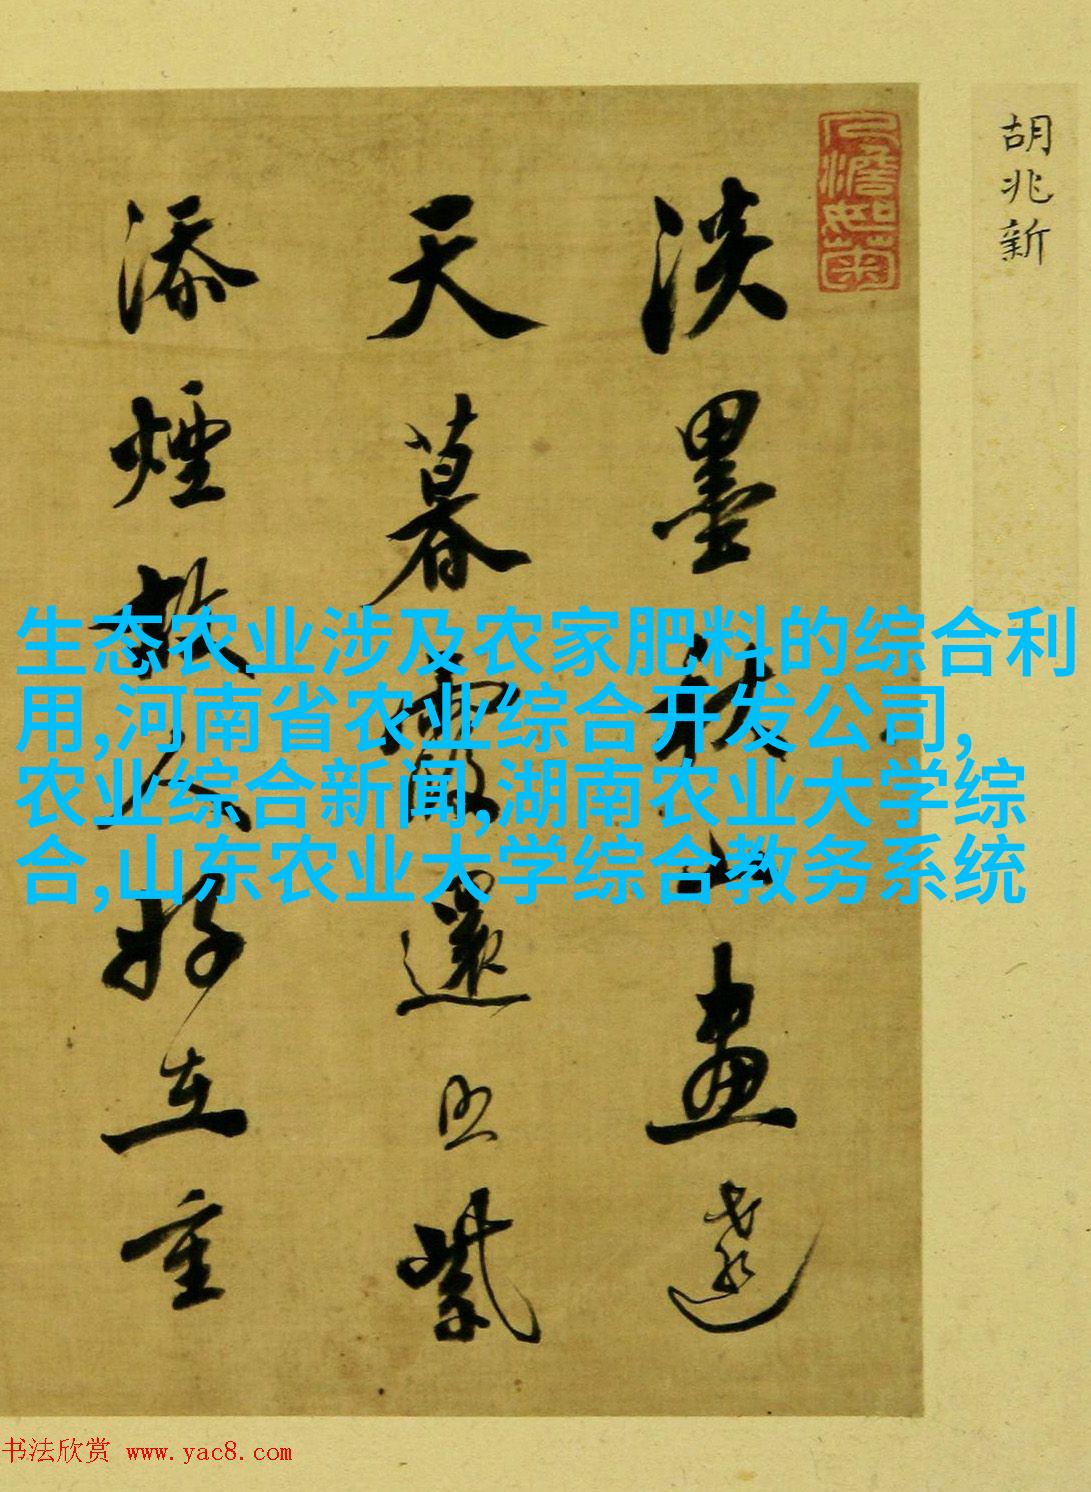 胡兆新
人澹如菊
淡墨秋山畫遠
天暮霞還照紫
添煙故人好在重
生态农业涉及农家肥料的综合利
用,河南省农业综合开发公司,
农业综合新闻,湖南农业大学综
合,山东农业大学综合教务系统
书法欣赏 www.yac8.com